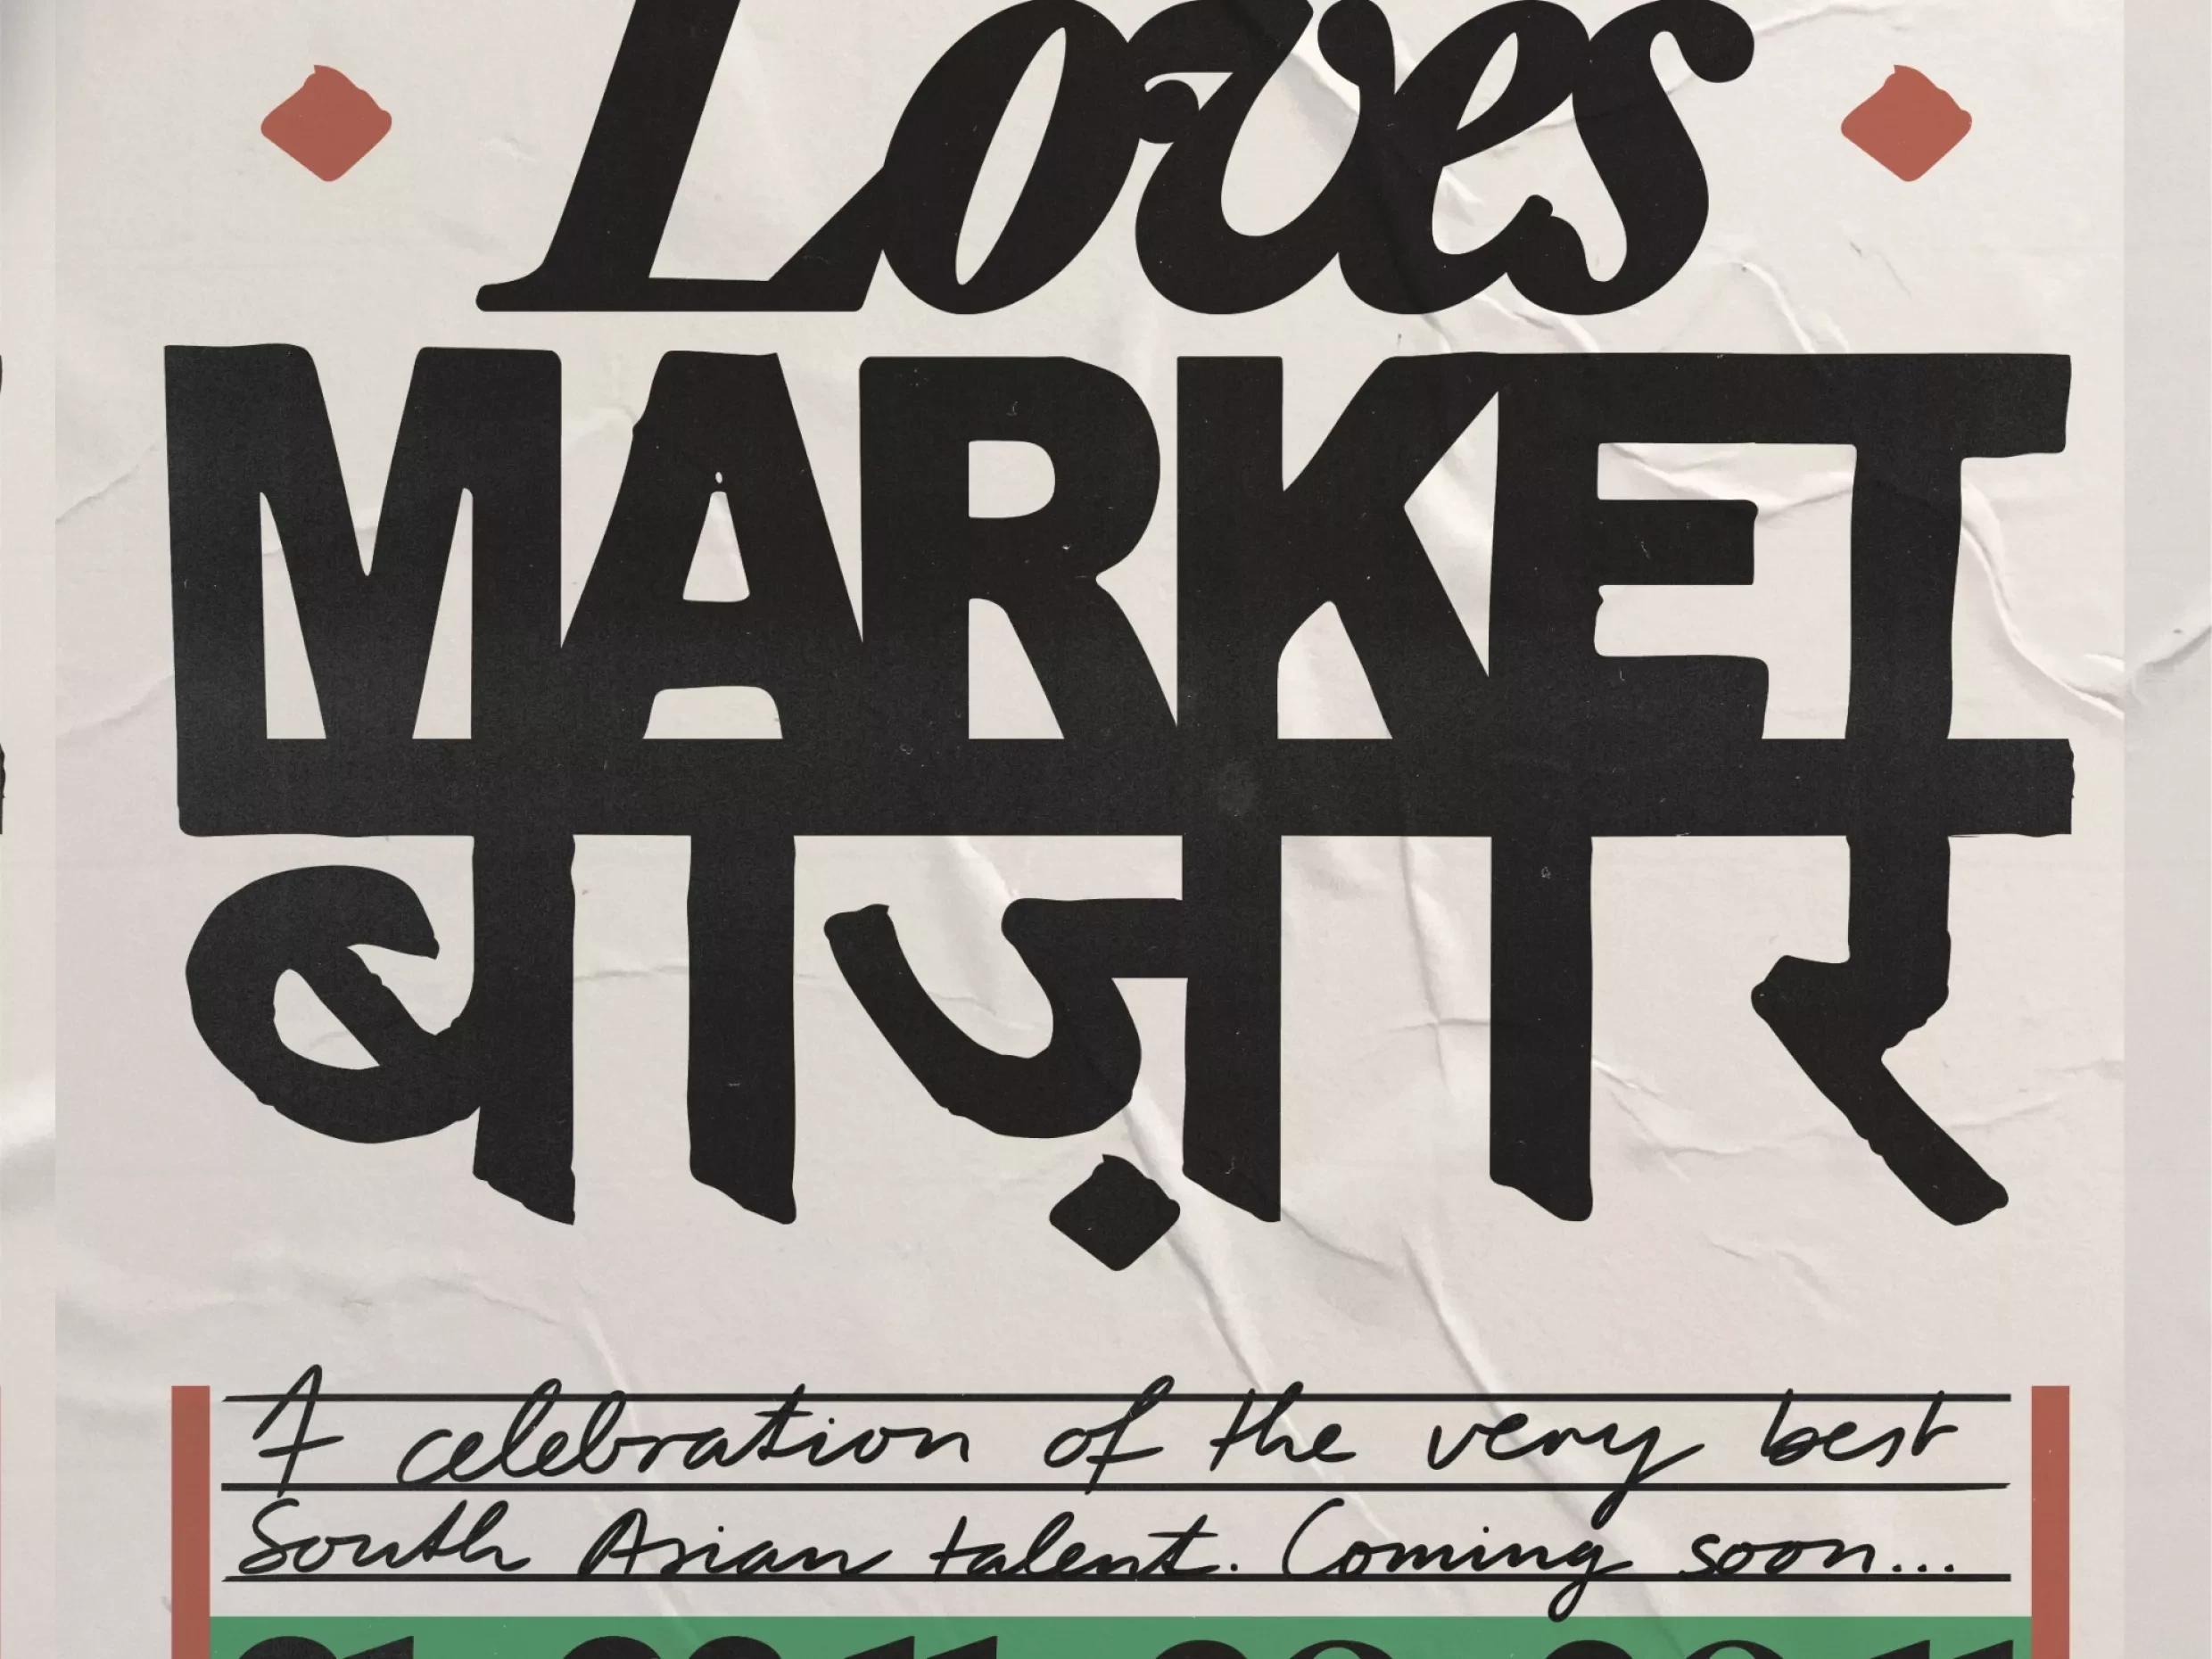 Loves
MARKET
बाज़ार
A celebration of the very best
South Asian talent. Coming soon...